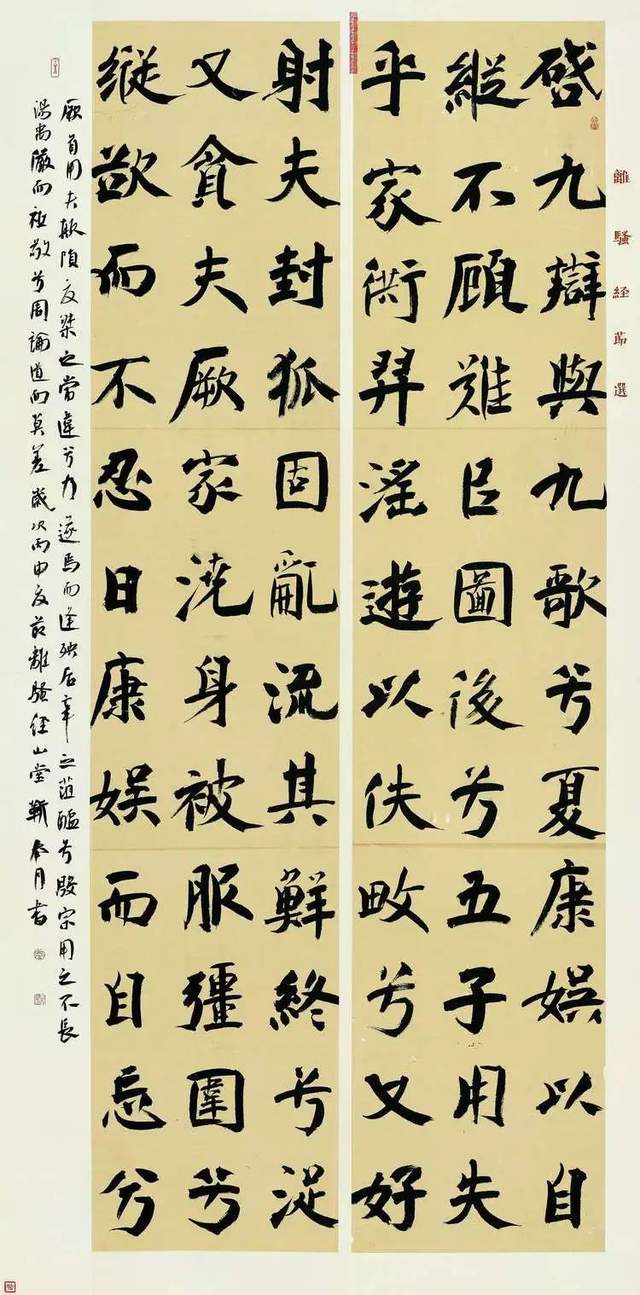 離騷经節選
啓九辯與九歌兮夏康娱以自
縱不顧難㠯圖後兮五子用失
乎家衖羿淫遊以佚畋兮又好
射夫封狐固亂流其鮮終兮浞
又貪夫厥家澆身被服彊圍兮
縱欲而不忍日康娱而自忘兮
厥首用夫顛隕夏桀之常違兮乃遂焉而逢殃后辛之菹醢兮殷宗用之不長
湯禹嚴而祗敬兮周論道而莫差歲次丙申夏節離騷经山堂靳春月書